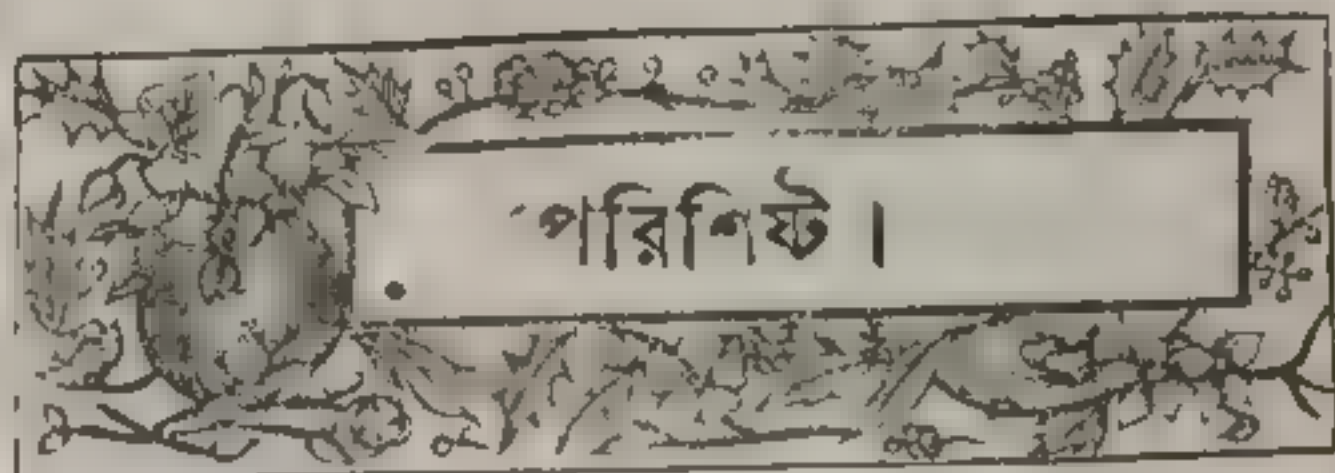 পরিশিষ্ট ।